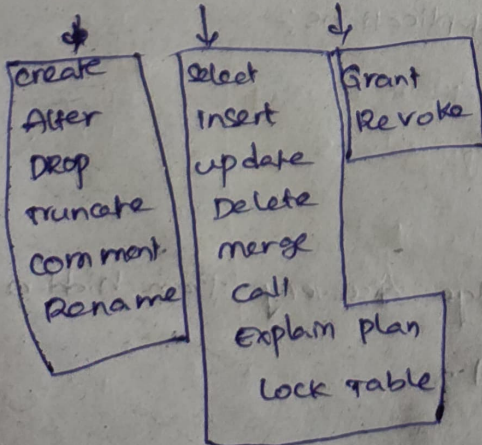 create
Alter
DROP
Truncate
comment
Rename
select
insert
update
Delete
merge
call
Explain plan
Lock Table
Grant
Revoke